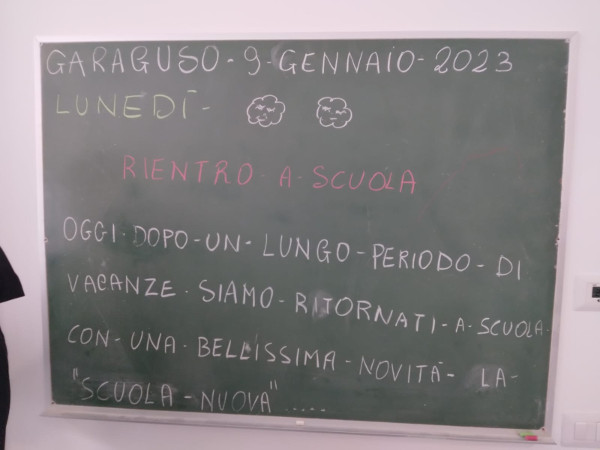 GARAGUSO - 9 - GENNAIO - 2023
LUNEDÌ -
RIENTRO - A - SCUOLA
OGGI - DOPO - UN - LUNGO - PERIODO - DI
VACANZE - SIAMO - RITORNATI - A - SCUOLA -
CON - UNA - BELLISSIMA - NOVITÀ - LA -
"SCUOLA - NUOVA" .....